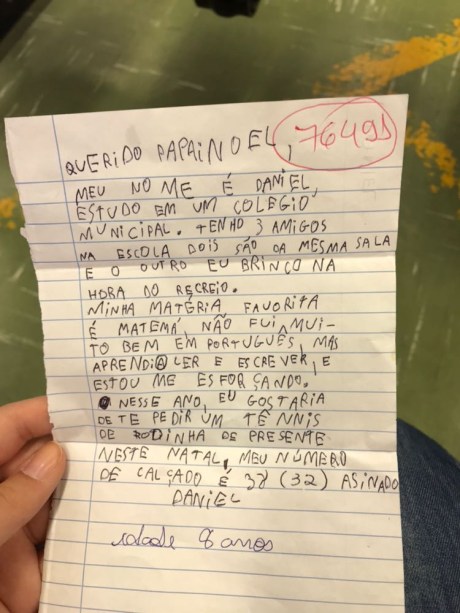 QUERIDO PAPAINOEL,
76491
MEU NOME É DANIEL,
ESTUDO EM UM COLEGIO
MUNICIPAL. TENHO 3 AMIGOS
NA ESCOLA DOIS SÃO DA MESMA SALA
E O OUTRO EU BRINCO NA
HORA DO RECREIO.
MINHA MATÉRIA FAVORITA
É MATEMÁ, NÃO FUI MUI-
TO BEM EM PORTUGUÊS, MAS
APRENDI A LER E ESCREVER, E
ESTOU ME ESFORÇANDO.
NESSE ANO, EU GOSTARIA
DE TE PEDIR UM TÊNNIS
DE RODINHA DE PRESENTE
NESTE NATAL, MEU NÚMERO
DE CALÇADO É 32 (32) ASINADO
DANIEL
idade 8 anos